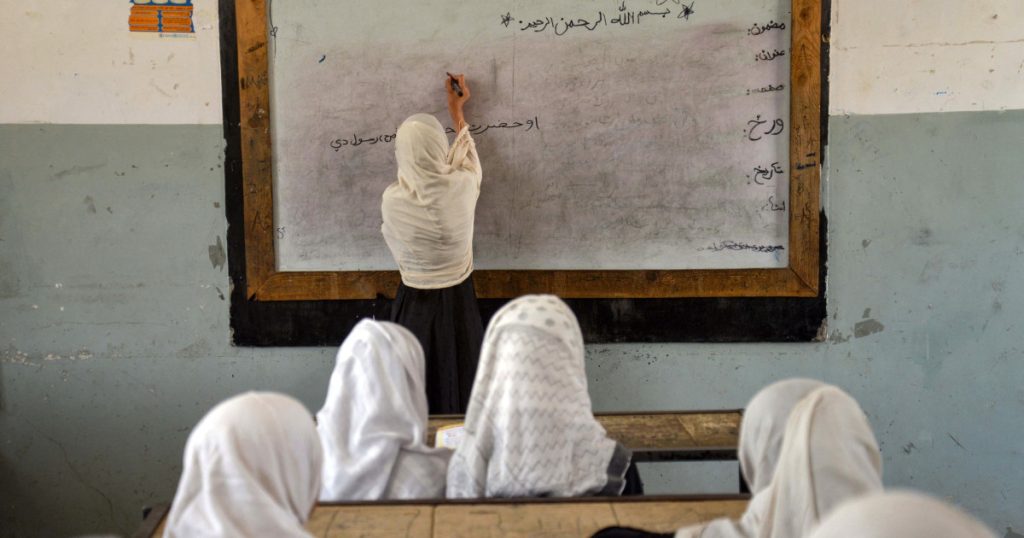 بسم الله الرحمن الرحیم
مضمون:
عنوان:
صفحه:
ورځ:
تاریخ:
او حضرت رسول دي